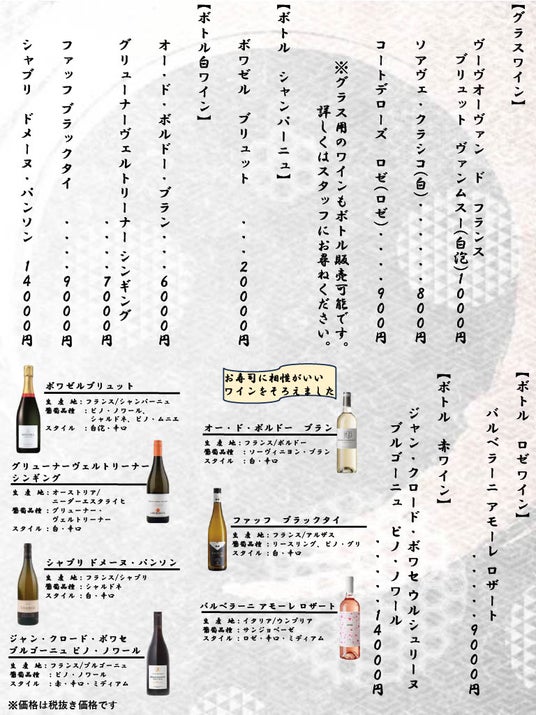 【グラスワイン】
ヴーヴオーヴァン ド フランス
ブリュット ヴァンムスー(白泡)1000円
ソアヴェ・クラシコ(白)・・・・・・800円
コートデローズ ロゼ(ロゼ)・・・・・900円
※グラス用のワインもボトル販売可能です。
詳しくはスタッフにお尋ねください。
【ボトル シャンパーニュ】
ボワゼル ブリュット ・・・・20000円
【ボトル白ワイン】
オー・ド・ボルドー・ブラン・・・・6000円
グリューナーヴェルトリーナー シンギング
・・・・・7000円
ファッフ ブラックタイ ・・・・・9000円
シャブリ ドメーヌ・バンソン 14000円
【ボトル ロゼワイン】
バルベラーニ アモーレ ロザート
・・・・・・9000円
【ボトル 赤ワイン】
ジャン・クロード・ボワセ ウルシュリーヌ
ブルゴーニュ ピノ・ノワール
・・・・・・14000円
お寿司に相性がいい
ワインをそろえました
ボワゼルブリュット
生 産 地：フランス/シャンパーニュ
葡萄品種 ：ピノ・ノワール、
シャルドネ、ピノ・ムニエ
スタイル ：白泡・辛口
オー・ド・ボルドー ブラン
生 産 地：フランス/ボルドー
葡萄品種 ：ソーヴィニヨン・ブラン
スタイル ：白・辛口
グリューナーヴェルトリーナー
シンギング
生 産 地：オーストリア/
ニーダーエスタライヒ
葡萄品種 ：グリューナー・
ヴェルトリーナー
スタイル：白・辛口
ファッフ ブラックタイ
生 産 地：フランス/アルザス
葡萄品種 ：リースリング、ピノ・グリ
スタイル ：白・辛口
シャブリ ドメーヌ・バンソン
生 産 地：フランス/シャブリ
葡萄品種 ：シャルドネ
スタイル ：白・辛口
バルベラーニ アモーレ ロザート
生 産 地：イタリア/ウンブリア
葡萄品種 ：サンジョベーゼ
スタイル ：ロゼ・辛口・ミディアム
ジャン・クロード・ボワセ
ブルゴーニュ ピノ・ノワール
生 産 地：フランス/ブルゴーニュ
葡萄品種 ：ピノ・ノワール
スタイル ：赤・辛口・ミディアム
※価格は税抜き価格です